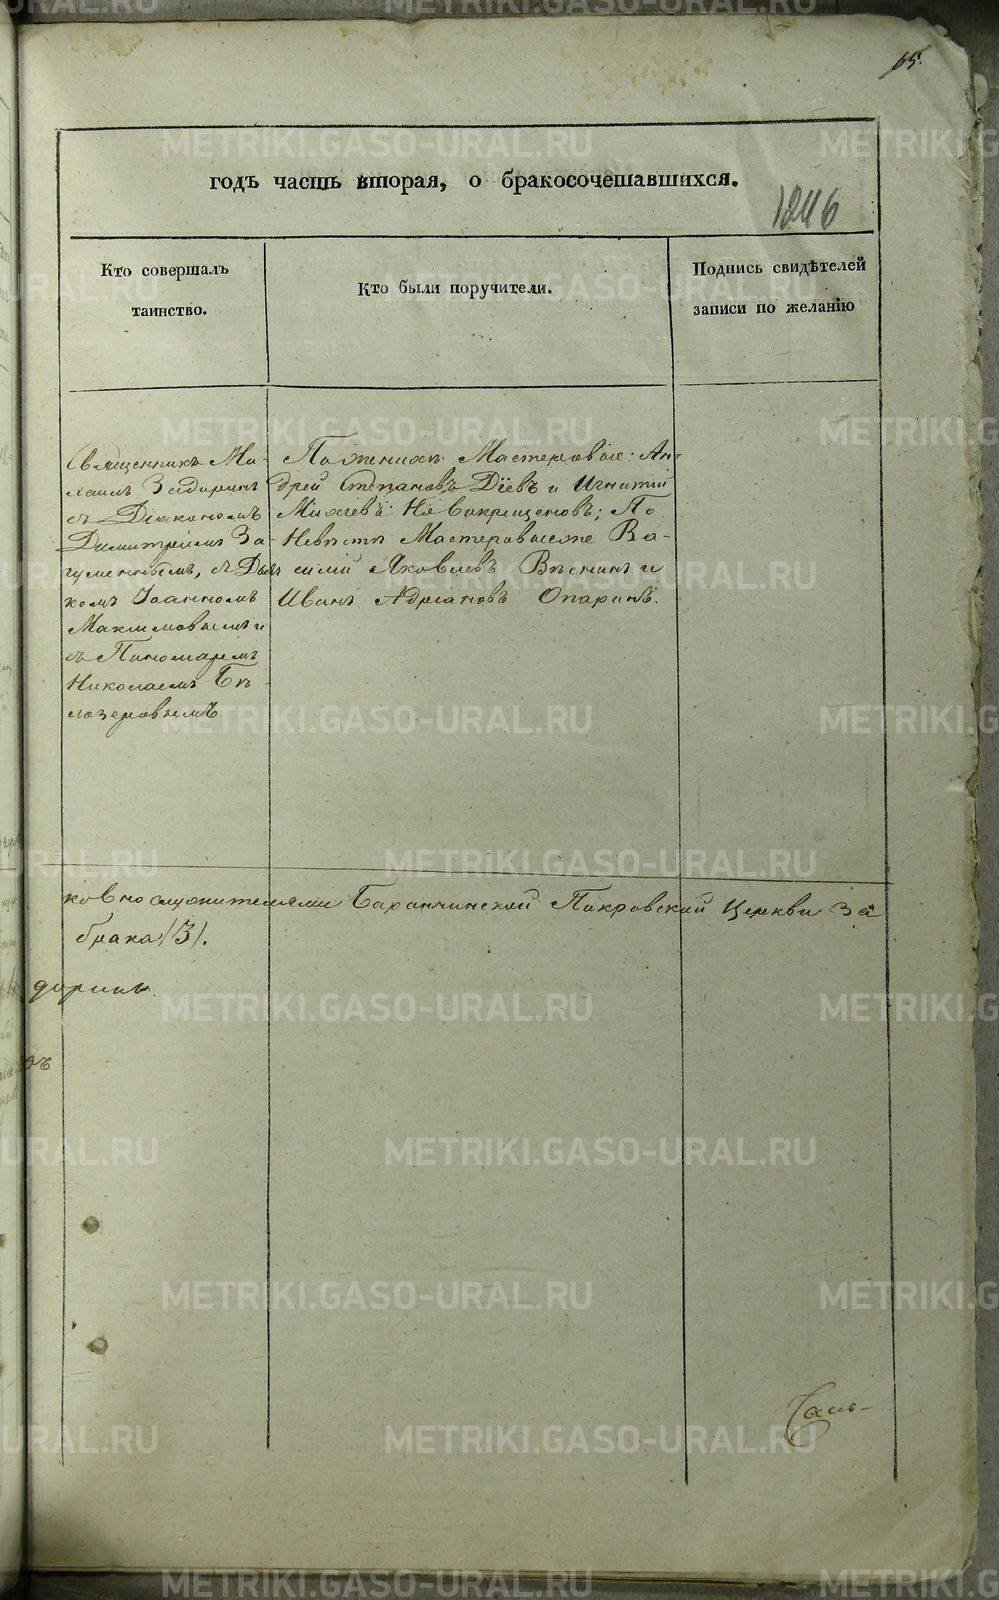 65.
годъ часть вторая, о бракосочетавшихся.
1246
Кто совершалъ
таинство.
Кто были поручители.
Подпись свидѣтелей
записи по желанію
Священникъ Ми-
хаилъ Задоринъ
съ Діакономъ
Димитріемъ За-
гуменнымъ, съ Дьяч
комъ Іоанномъ
Максимовымъ и
съ Пономаремъ
Николаемъ Бѣ-
лозеровымъ.
По женихѣ Мастеровые: Ан-
дрей Степановъ Діевъ и Игнатій
Михѣевъ Новокрещеновъ; По
Невѣстѣ Мастеровыеже Ва-
силій Яковлевъ Вѣснинъ и
Иванъ Адріановъ Опаринъ.
ковнослужителями Баранчинской Покровской Церкви За
брака /3/.
доринъ.
въ
METRIKI.GASO-URAL.RU